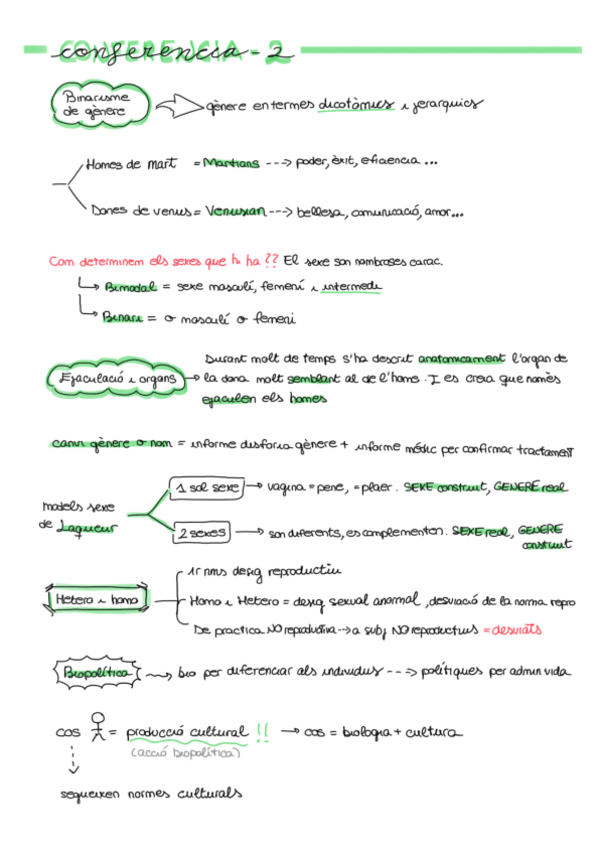 conferència - 2
Binarisme de gènere → gènere en termes dicotòmics i jerarquics
Homes de mart = Martians ---> poder, èxit, eficiencia ...
Dones de venus = Venusian ---> bellesa, comunicació, amor...
Com determinem els sexes que hi ha?? El sexe son nombroses carac.
Bimodal = sexe masculí, femení i intermedi
Binari = o masculí o femeni
Durant molt de temps s'ha descrit anatomicament l'organ de
Ejaculació i organs → la dona molt semblant al de l'home. I es creia que només
ejaculen els homes
canvi gènere o nom = informe disforia gènere + informe mèdic per confirmar tractament
models sexe
de Laqueur
1 sol sexe → vagina = pene, = plaer. SEXE construit, GENERE real
2 sexes → son diferents, es complementen. SEXE real, GENERE
construit
1r nms desig reproductiu
Hetero i homo
Homo i Hetero = desig sexual anormal, desviació de la norma repro
De practica NO reproductiva --> a subj NO reproductius = desviats
Biopolítica → bio per diferenciar als individus ---> polítiques per admin vida
cos = producció cultural !! → cos = biologia + cultura
(acció biopolítica)
segueixen normes culturals